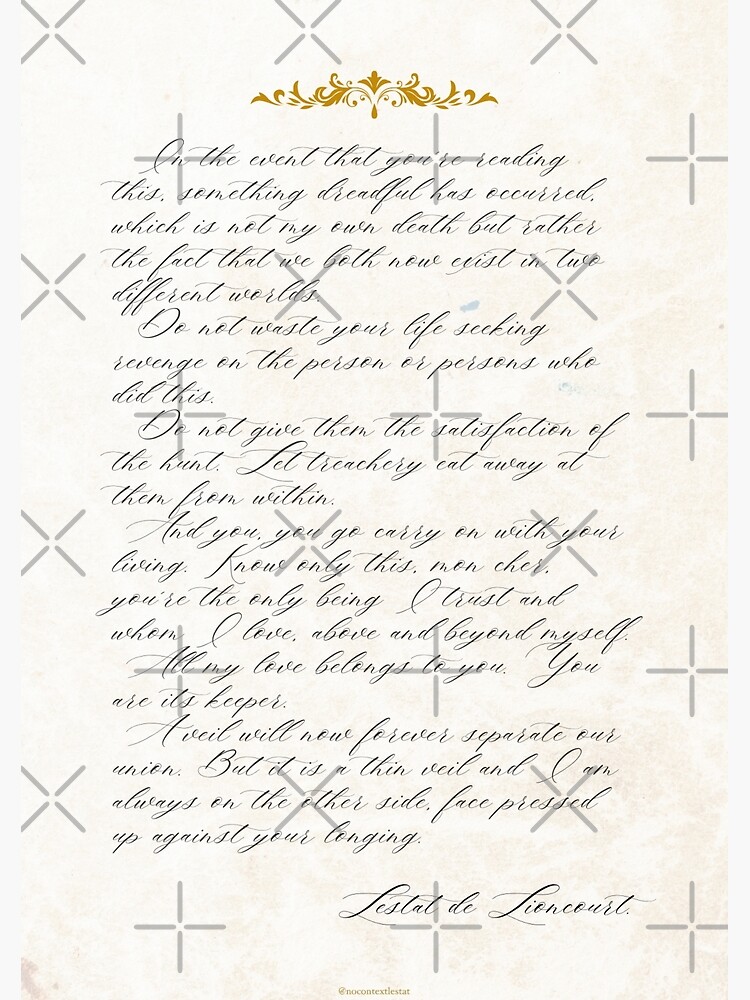 In the event that you're reading
this, something dreadful has occurred,
which is not my own death but rather
the fact that we both now exist in two
different worlds.
Do not waste your life seeking
revenge on the person or persons who
did this.
Do not give them the satisfaction of
the hunt. Let treachery eat away at
them from within.
And you, you go carry on with your
living. Know only this, mon cher,
you're the only being I trust and
whom I love, above and beyond myself.
All my love belongs to you. You
are its keeper.
A veil will now forever separate our
union. But it is a thin veil and I am
always on the other side, face pressed
up against your longing.
Lestat de Lioncourt.
@nocontextlestat